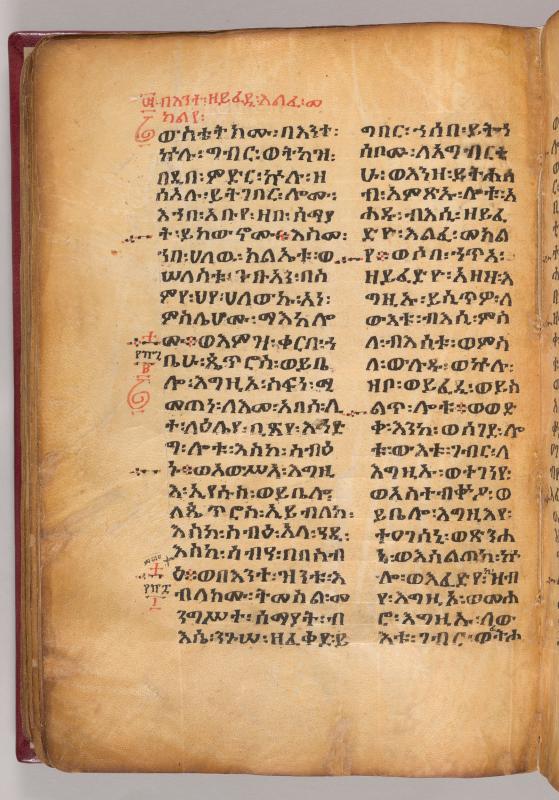 በእንተ፡ዘይፈዲ፡እልፈ፡መ
ክልየ፡
ውስቴትክሙ፡በእንተ፡
ኵሉ፡ግብር፡ወትካዝ፡
በዲበ፡ምድር፡ኵሉ፡ዘ
ሰአሉ፡ይትገበር፡ሎሙ፡
እንበ፡አቡየ፡ዘበ፡ሰማያ
ት፡ይከውኖሙ፡እስመ፡
ኀበ፡ሀለዉ፡ክልኤቱ፡ወ
ሠለስቱ፡ጉቡአን፡በስ
ምየ፡ህየ፡ሀለውኩ፡አነ፡
ምስሌሆሙ፡ማእከሎ
ሙ፡ወእምዝ፡ቀርበ፡ኀ
ቤሁ፡ጴጥሮስ፡ወይቤ
ሎ፡እግዚእ፡ስፍነ፡ሚ
መጠነ፡ለእመ፡አበሰ፡ሊ
ተ፡ለዕሌየ፡ቢጽየ፡እኅድ
ግ፡ሎቱ፡እስከ፡ስብዕ
ኑ፡ወአውሥአ፡እግዚ
እ፡ኢየሱስ፡ወይቤሎ፡
ለጴጥሮስ፡አይብለከ፡
እስከ፡ስብዕ፡አላ፡ሃዲ፡
እስከ፡ሰብዓ፡በበስብ
ዕ፡ወበእንተ፡ዝንቱ፡እ
ብለክሙ፡ትመስል፡መ
ንግሥተ፡ሰማያት፡ብ
እሴ፡ንጉሠ፡ዘፈቀደ፡ይ
ግበር፡ኀሰበ፡ይትኀ
ሰቦሙ፡ለአግብርቲ
ሁ፡ወእንዘ፡ይትሐሰ
ብ፡አምጽኡ፡ሎቱ፡አ
ሐዱ፡ብእሲ፡ዘይፈ
ድዮ፡እልፈ፡መክል
የ፡ወሶበ፡ኀጥአ፡
ዘይፈድዮ፡አዘዘ፡እ
ግዚኡ፡ይሲጥዎ፡ለ
ውእቱ፡ብእሲ፡ምስ
ለ፡ብእሲቱ፡ወምስ
ለ፡ውሉዱ፡ወኵሉ፡
ዘቦ፡ወይፈዲ፡ወይስ
ልጥ፡ሎቱ፡ወወድ
ቀ፡እንከ፡ወሰገደ፡ሎ
ቱ፡ውእቱ፡ገብር፡ለ
እግዚኡ፡ወተገነየ፡
ወአስተብቍዖ፡ወ
ይቤሎ፡እግዚእየ፡
ተዐገሰኒ፡ወጽንሐ
ኒ፡ወእስልጠከ፡ኵ
ሎ፡ወእፈድየከ፡ዘብ
የ፡እግዚኦ፡ወመሐ
ሮ፡እግዚኡ፡ለው
እቱ፡ገብር፡ወትሐ